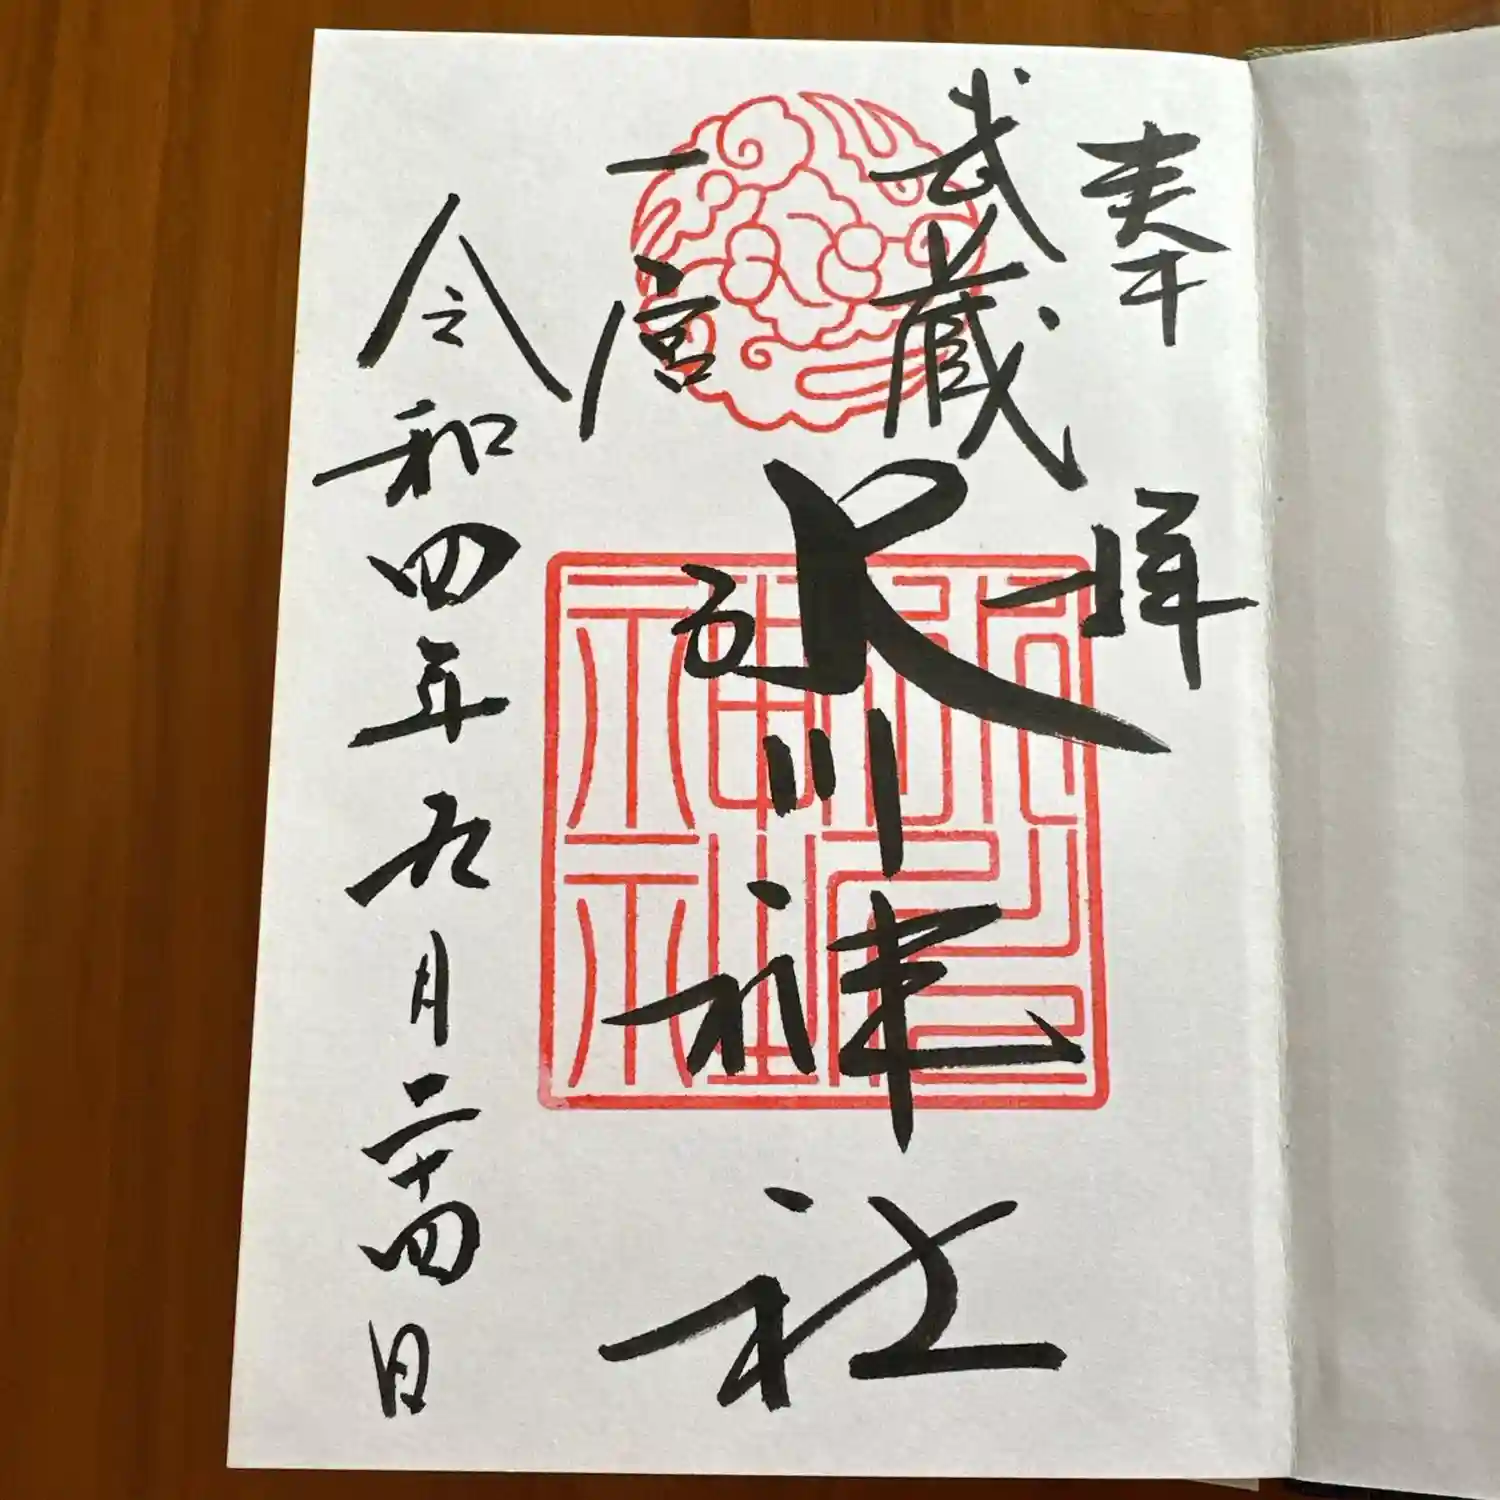 奉拝
武蔵
一宮
氷川神社
令和四年九月二十四日
氷川
神社